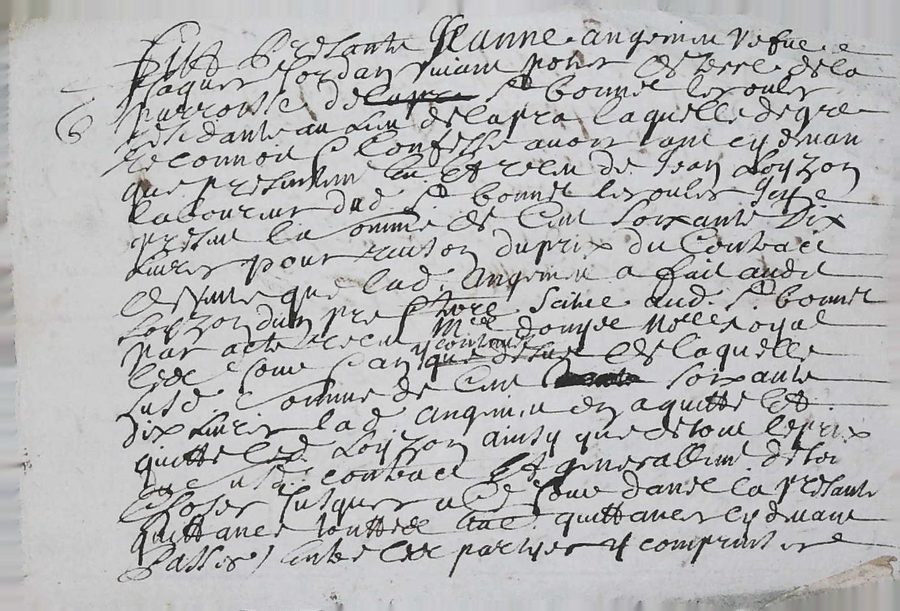 Fust presante Jeanne angenieu vefue a
Jacques Jordan vivant potier de terre de la
parroisse de lapra St bonnet les oules
residante au lieu de lapra laquelle de gre
reconnoit & confesse avoir eu cy devant
que presentement eu et receu de Jean Loyzon
laboureur dud St bonnet les oules
present la somme de Cent soixante dix
livres pour raison du prix du Contract
de vante que lad. angenieu a fait audit
Loyzon dun pre terre scitué aud. St bonnet
par acte receu Me donyet no.re royal
contenu
les jour & an que dessus de laquelle
susd. somme de Cent soixante
dix livres lad. angenieu en aquitte et
quitte led. Loyzon ainsy que de tout le prix
du susd. contract et generallement de tou
choses jusques a ce jour dans la presante
quittance touttes les quittances cy devant
Passés entre les partyes y comprinses
6